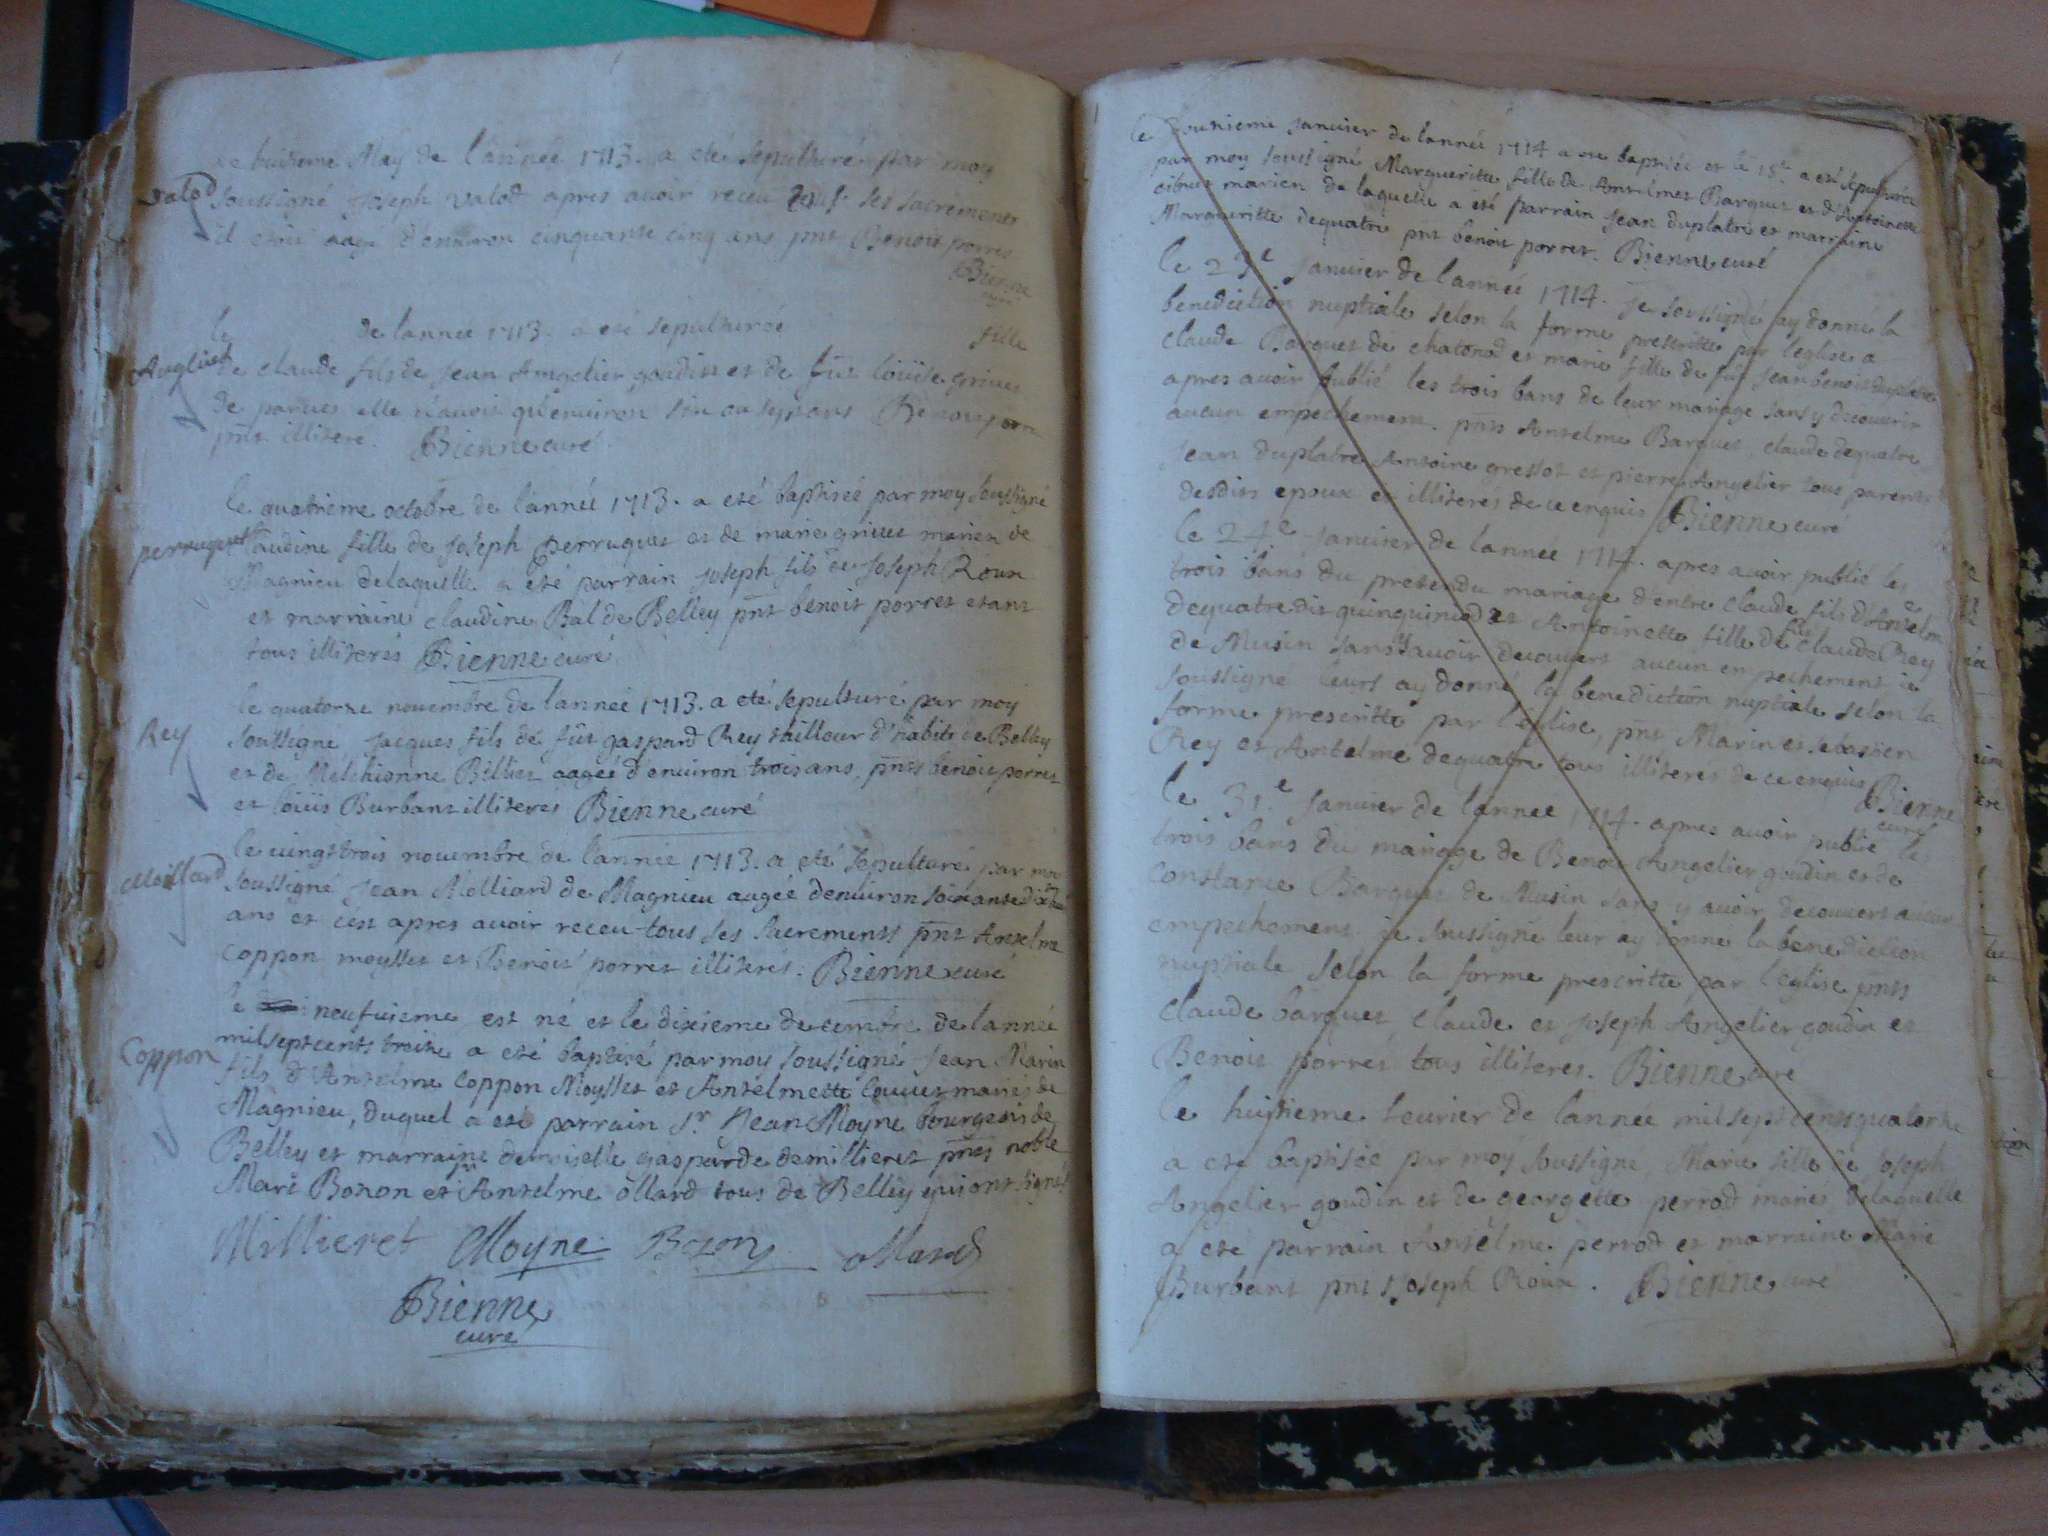 le huitieme May de l'année 1713. a eté sepulturé par moy
valod soussigné Joseph valod apres avoir receu tous les sacrements
il etoit aagé d'environ cinquante cinq ans pnt Benoit porret
Bienne
curé
le de l'année 1713. a eté sepulturée fille
Anglier de claude fils de Jean Angelier goudin et de fut loüise grivet
de parves elle n'avoit qu'environ six ou sept ans Benoit porret
pnt illiteré. Bienne curé
le quatrieme octobre de l'année 1713. a eté baptisée par moy soussigné
perruquet Claudine fille de Joseph perruquet et de marie grivet mariez de
Magnieu de laquelle a eté parrain Joseph fils de Joseph Roux
et marraine claudine Bal de Belley pnt benoit porret etant
tous illiterés Bienne curé
le quatorze novembre de l'année 1713. a eté sepulturé par moy
Rey soussigné Jacques fils de fût gaspard Rey tailleur d'habits de Belley
et de Melchionne Belliet aagée d'environ trois ans, pnts benoit porret
et loüis Burbant illiterés Bienne curé
le vingt trois novembre de l'année 1713. a eté sepulturé par moy
Molliard soussigné Jean Molliard de Magnieu aagée d'environ soixante dix huit
ans et cest apres avoir receu tous ses sacrements pnt Antelme
Coppon moysset et Benoit porret illiteres. Bienne curé
le neufvieme est né et le dixieme decembre de l'année
milseptcents treize a eté baptisé par moy soussigné Jean Marin
Coppon fils d'Antelme Coppon Moysset et Antelmette Couvet mariés de
Magnieu, duquel a eté parrain Sr. Jean Moyne bourgeois de
Belley et marraine demoiselle gasparde demillieret pnts noble
Marc Bozon et Sr Antelme ollard tous de Belley qui ont signés
Millieret Moyne Bozon ollard
Bienne
curé
le janvier de l'année 1714 a eté baptisée et le 15e. a eté sepulturée
par moy soussigné Margueritte fille de Antelmet Barquet et d'Antoinette
mariez de laquelle a eté parrain Jean duplatre et marraine
Margueritte dequatre pnt benoit porret. Bienne curé
le 23e Janvier de l'année 1714. Je soussigné ay donné la
benediction nuptiale selon la forme prescritte par l'eglise a
claude Barquet de chatonod et marie fille de fût Jean benoit duplatre
apres avoir publié les trois bans de leur mariage sans y decouvrir
aucun empechement. pnts Antelme Barquet, claude dequatre
Jean duplatre Antoine gressot et pierre Angelier tous parents
desdits epoux et illiterés de ce enquis Bienne curé
le 24e Janvier de l'année 1714. apres avoir publié les
trois bans du pretendu mariage d'entre claude fils d'Antelme
dequatre dit quinquinod et Antoinette fille de fût claude Rey
de Musin sans avoir decouvert aucun empechement je
soussigné leurs ay donné la benediction nuptiale selon la
forme prescritte par l'eglise, pnt Marin et sebastien
Rey et Antelme dequatre tous illiterés de ce enquis Bienne
curé
le 31.e Janvier de l'année 1714. apres avoir publié les
trois bans du mariage de Benoit Angelier goudin et de
Constance Barquet de Musin sans y avoir decouvert aucun
empechement je soussigné leur ay donné la benediction
nuptiale selon la forme prescritte par l'eglise pnts
claude barquet, claude et Joseph Angelier goudin et
Benoit porret tous illiteres. Bienne curé
le huitieme fevrier de l'année mil sept cents quatorze
a eté baptisée par moy soussigné Marie fille de Joseph
Angelier goudin et de georgette perrod mariés de laquelle
a eté parrain Antelme perrod et marraine Marie
Burbant pnt Joseph Roux. Bienne curé